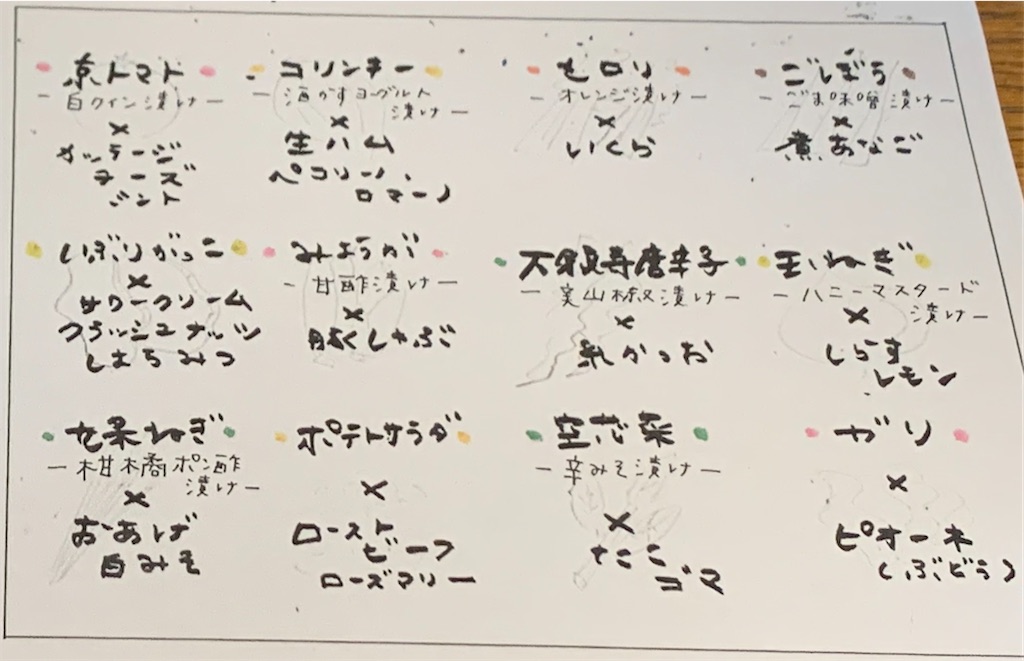 京トマト
ー白ワイン漬けー
×
カッテージ
チーズ
ミント
コリンキー
ー酒かすヨーグルト
漬けー
×
生ハム
ペコリーノ・
ロマーノ
セロリ
ーオレンジ漬けー
×
いくら
ごぼう
ーごま味噌漬けー
×
煮あなご
いぶりがっこ
×
サワークリーム
クラッシュナッツ
はちみつ
みょうが
ー甘酢漬けー
×
豚しゃぶ
万願寺唐辛子
ー実山椒漬けー
×
糸かつお
玉ねぎ
ーハニーマスタード
漬けー
×
しらす
レモン
九条ねぎ
ー柑橘ポン酢
漬けー
×
おあげ
白みそ
ポテトサラダ
×
ロースト
ビーフ
ローズマリー
空芯菜
ー辛みそ漬けー
×
たこ
ゴマ
ガリ
×
ピオーネ
(ぶどう)